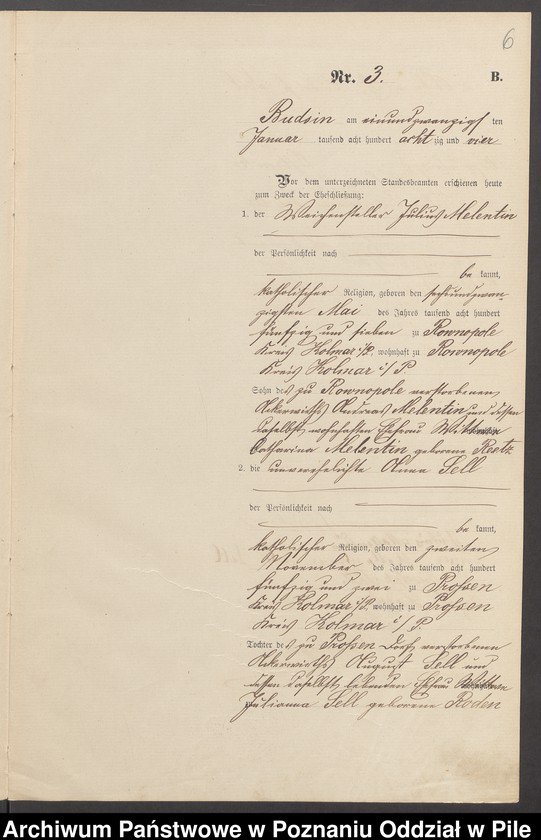 6
Nr. 3. B.
Budsin am einundzwanzigsten
Januar tausend acht hundert achtzig und vier
Vor dem unterzeichneten Standesbeamten erschienen heute
zum Zweck der Eheschließung:
1. der Weichensteller Julius Melentin
der Persönlichkeit nach
be kannt,
katholischer Religion, geboren den sechsundzwan
zigsten Mai des Jahres tausend acht hundert
fünfzig und sieben zu Rownopole
Kreis Kolmar i/P. wohnhaft zu Rownopole
Kreis Kolmar i/P
Sohn des zu Rownopole verstorbenen
Ackerwirths Andreas Melentin und dessen
daselbst wohnhaften Ehefrau
Catharina Melentin geborene Reetz
2. die unverehelichte Anna Sell
der Persönlichkeit nach
be kannt,
katholischer Religion, geboren den zweiten
November des Jahres tausend acht hundert
fünfzig und zwei zu Prossen
Kreis Kolmar i/P. wohnhaft zu Prossen
Kreis Kolmar i/P.
Tochter des zu Prossen Dorf verstorbenen
Ackerwirths August Sell und
dessen daselbst lebenden Ehefrau
Julianna Sell geborene Roden
Archiwum Państwowe w Poznaniu Oddział w Pile